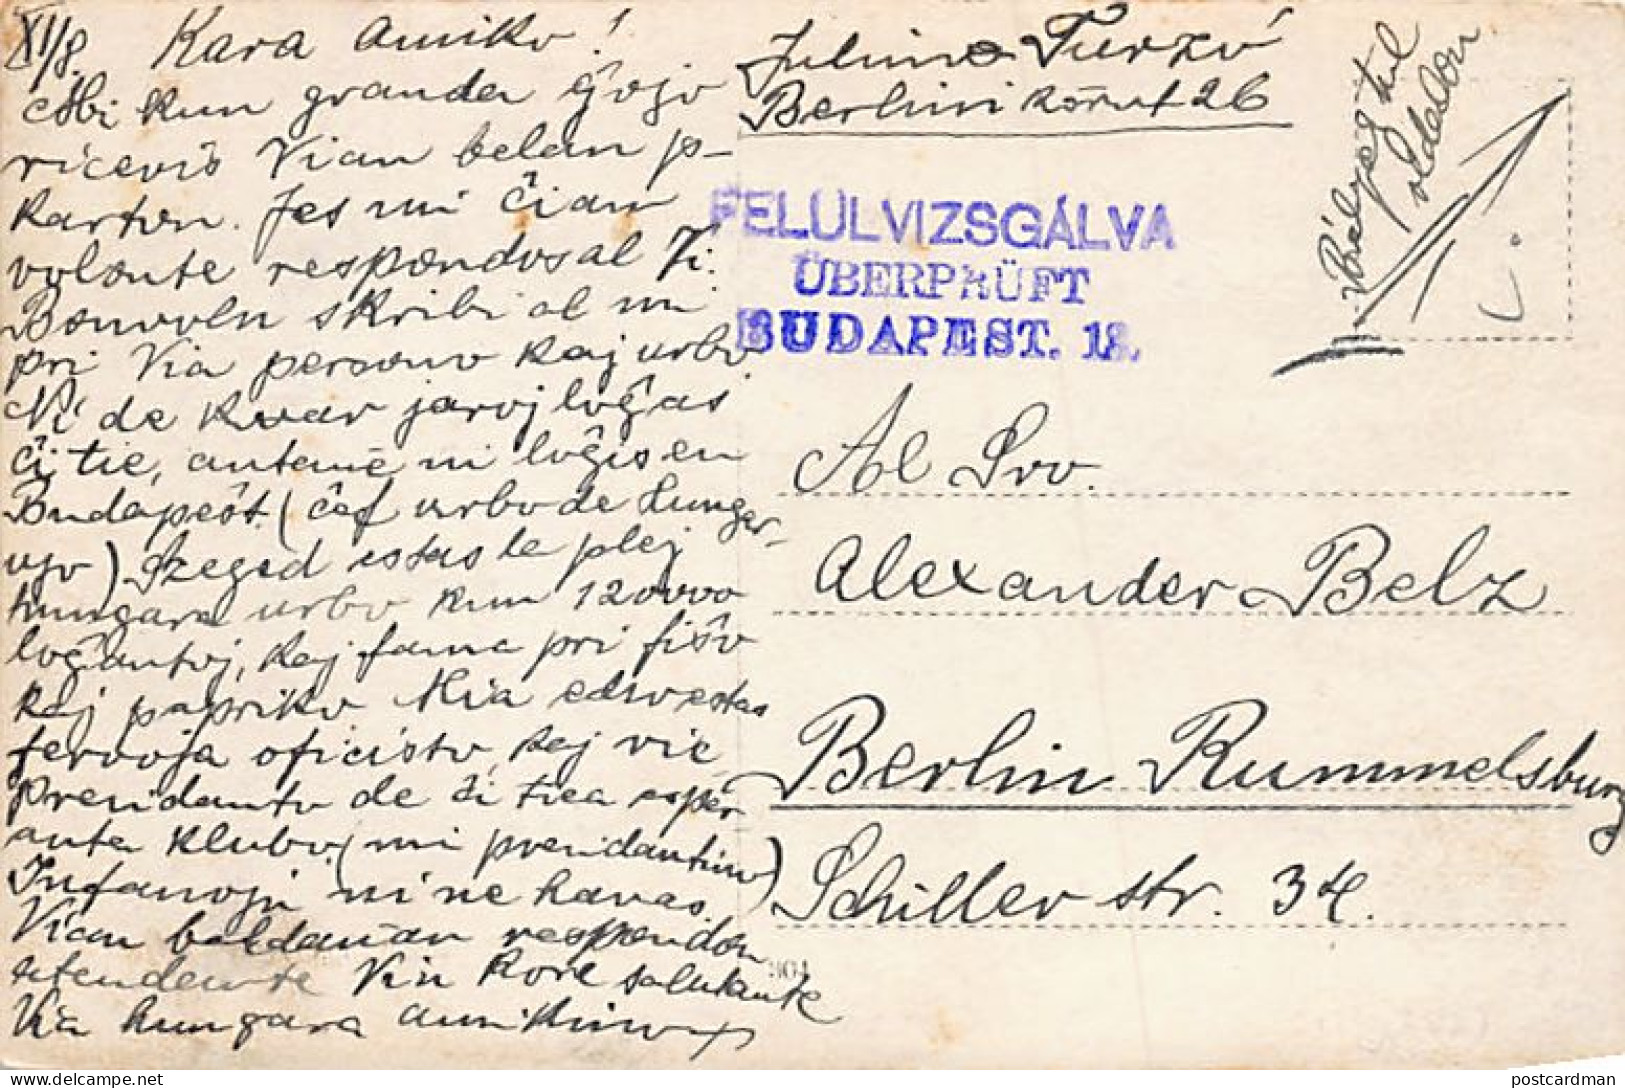 XI/8. Kara amiko!
Mi kun granda ĝojo
ricevis Vian belan p-
karton. Jes mi ĉiam
volonte respondos al Vi.
Bonvolu skribi al mi
pri Via persono kaj urbo.
Ni de kvar jaroj loĝas
ĉi tie, antaŭe ni loĝis en
Budapest (ĉef urbo de Hungar-
ujo) Szeged estas la plej
hungara urbo kun 120000
loĝantoj, kaj fama pri fiŝo
kaj papriko. Mia edzo estas
fervoja oficisto, kaj vic
prezidanto de ĉi tiea esper
anta klubo, (mi prezidantino)
Infanojn ni ne havas.
Vian baldaŭan respondon
atendante Vin kore salutante
Via hungara amikino
Julino Turzó
Berlini körut 26
Bélyeg tul
oldalon
FELÜLVIZSGÁLVA
ÜBERPRÜFT
BUDAPEST. 18.
Al Sro.
Alexander Belz
Berlin Rummelsburg
Schiller str. 34.
postcardman